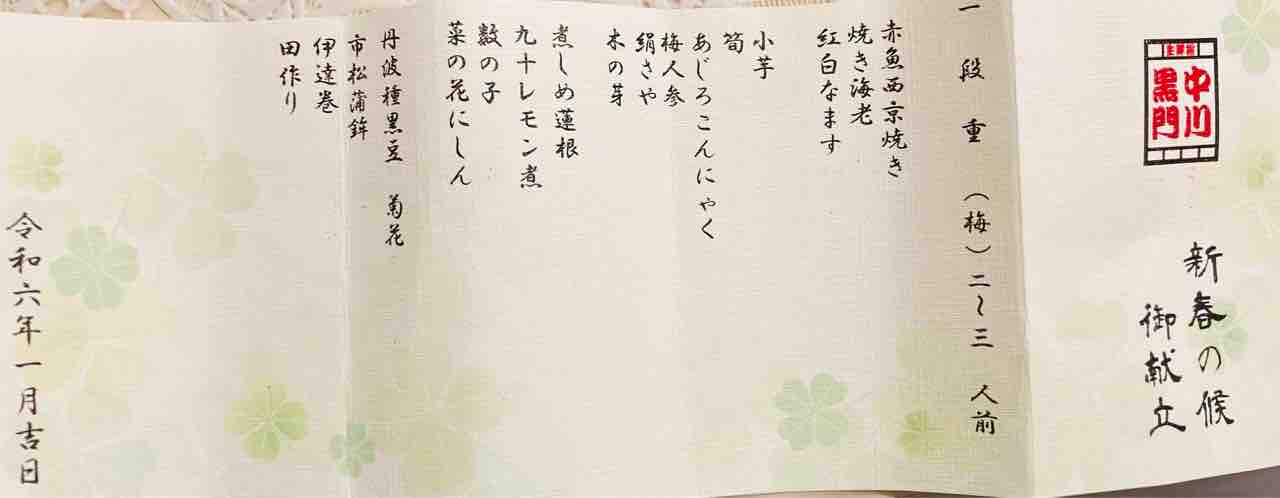 中川
黒門
新春の候
御献立
一段重（梅）二〜三 人前
赤魚西京焼き
焼き海老
紅白なます
小芋
筍
あじろこんにゃく
梅人参
絹さや
木の芽
煮しめ蓮根
九十レモン煮
数の子
菜の花にしん
丹波種黒豆 菊花
市松蒲鉾
伊達巻
田作り
令和六年一月吉日